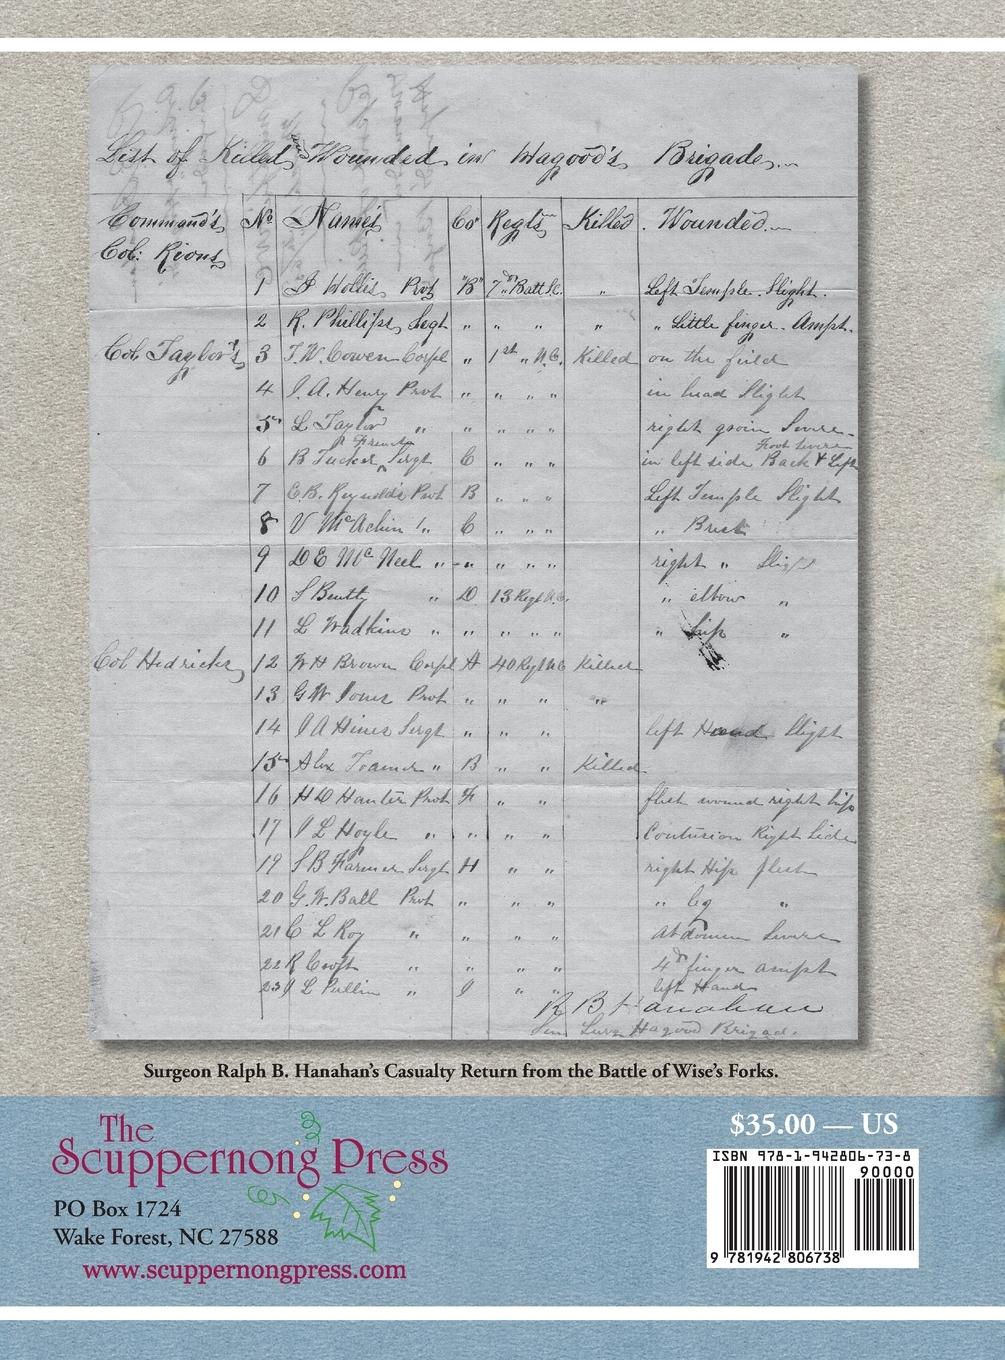 List of Killed and Wounded in Hagood's Brigade
Command's No Names Co Regts Killed Wounded
Col: Rions
1 Hollis Prvt "B" 7" Batt S.C. " Left Temple. Slight.
2 R. Phillips, Segt " " " " " " Little finger. Ampt.
Col. Taylor's 3 T. W. Cowen Corpl " 1st " N.C. Killed on the field
4 J. A. Henry Prvt " " " " in head Slight
5 L Taylor " " " " " right groin Severe
French Foot Severe
6 B Tucker Sergt C " " " in left side Back & Left
7 C B. Reynolds Prvt B " " " Left Temple Slight
8 V McAchin " C " " " " Brest
9 D E McNeel " " " " " right " Slight
10 S Beutty " D 13 Regt N.C. " elbow "
11 L Wadkins " " " " " " hip "
Col Hedricks 12 W H Brown Corpl A 40 Regt N C Killed
13 G W Jones Prvt " " " "
14 J A Hines Sergt " " " left Hand Slight
15 Alex " B " " Killed
16 H D Hunter Prvt F " " flesh wound right hip
17 J L Hoyle " " " " Contusion Right Side
19 S B Farmer Sergt H " " right Hip flesh
20 G. W. Ball Prvt " " " " leg "
21 C L Roy " " " " Abdomen Severe
22 R Croft " " " " 4th finger ampt
23 J L Pullin " I " " left Hand
R B Hanahan
Surg Hagood Brigad.
Surgeon Ralph B. Hanahan's Casualty Return from the Battle of Wise's Forks.
The
Scuppernong Press
PO Box 1724
Wake Forest, NC 27588
www.scuppernongpress.com
$35.00 — US
ISBN 978-1-942806-73-8
90000
9 781942 806738